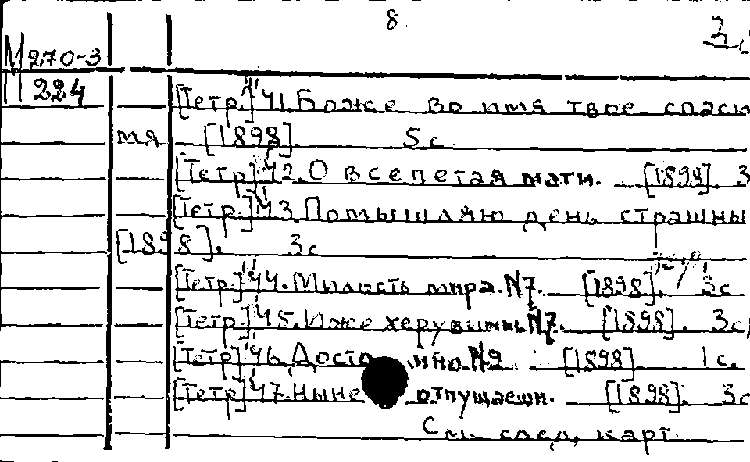 8.
3.
М 270-3
П 224
[Тетр.] 41. Боже во имя твое спаси
мя [1898] 5с
[Тетр.] 42. О всепетая мати. [1898]. 3
[Тетр.] 43. Помышляю день страшны
[1898]. 3с
[Тетр.] 44. Милость мира. N7. [1898]. 3с
[Тетр.] 45. Иже херувимы N7. [1898]. 3с
[Тетр.] 46. Досто йно. N2 [1898] 1с.
[Тетр.] 47. Ныне отпущаеши. [1898]. 3с
См. след. карт.